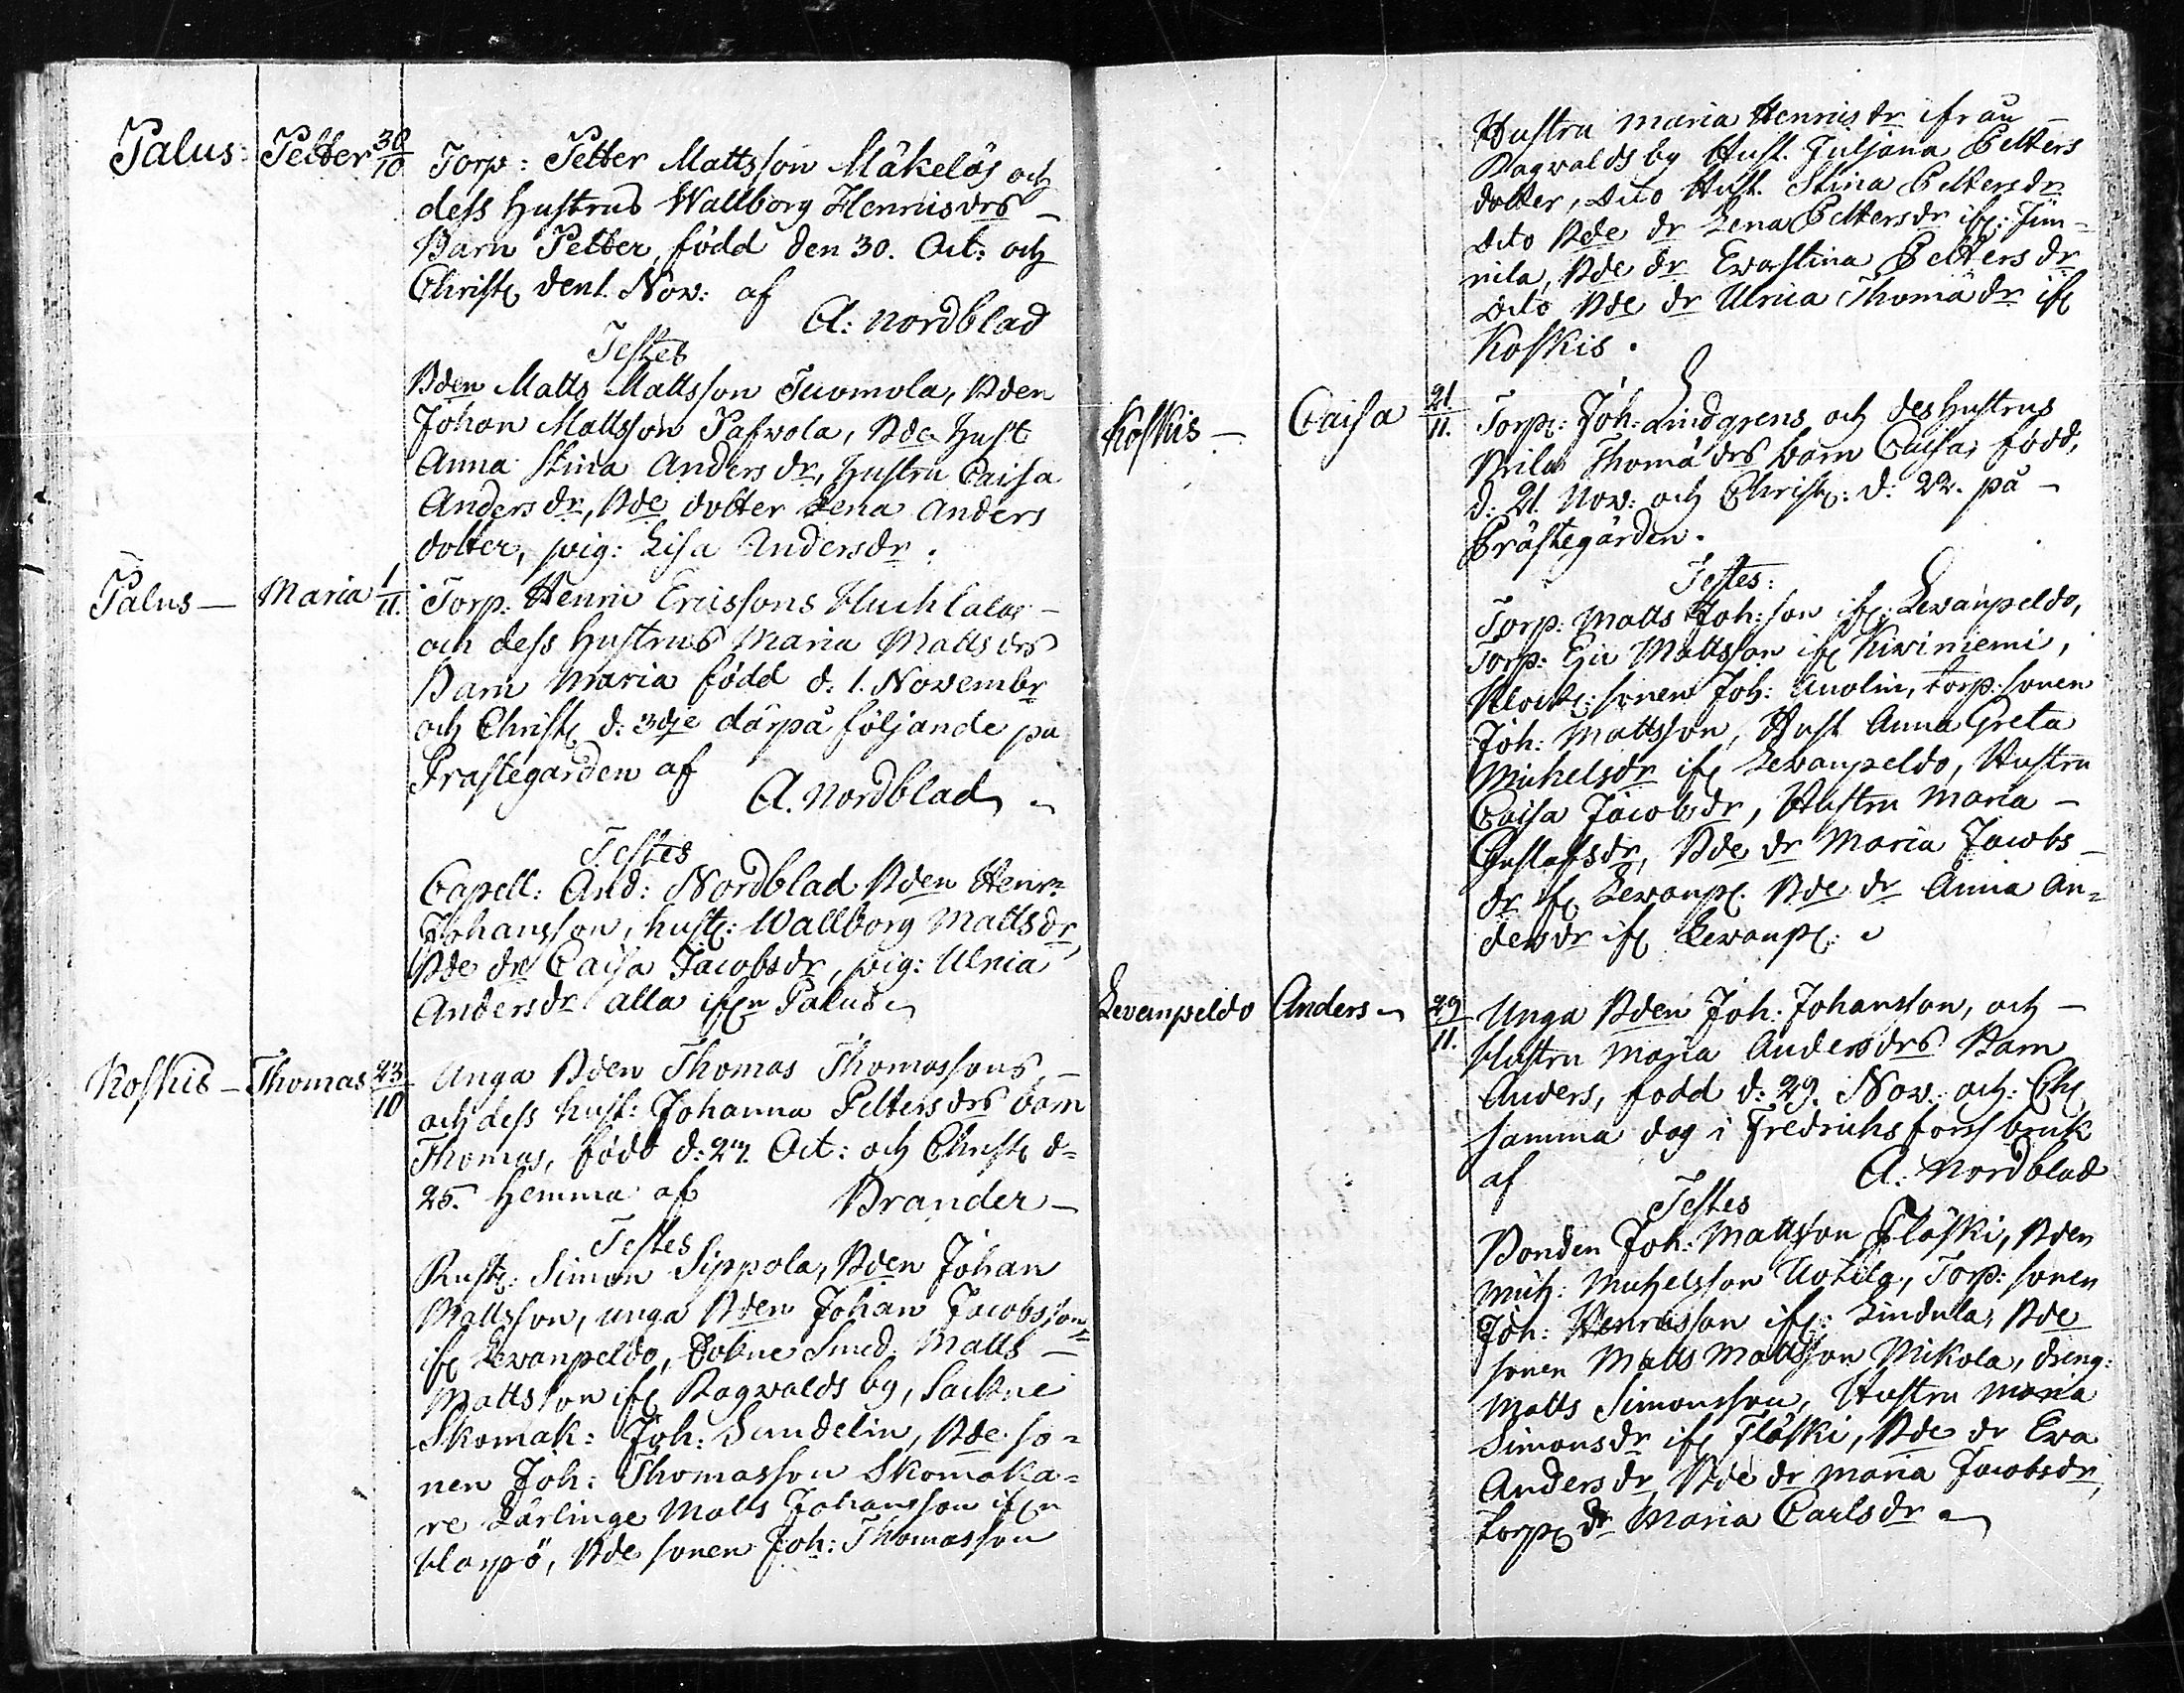 Palus: Petter 30/10 Torp: Petter Mattsson Mäkeläs och
dess Hustrus Wallborg Henricsdrs
Barn Petter, född den 30. Oct: och
Christ: den 1. Nov: af
A: Nordblad
Testes
Bden Matts Mattsson Tuomola, Bden
Johan Mattsson Pafwola, Bde Hust
Anna Stina Andersdr, Hustru Caisa
Andersdr, Bde dotter Lena Anders
dotter, pig: Lisa Andersdr.
Palus — Maria 1/11. Torp: Henric Ericssons
och dess Hustrus Maria Mattsdrs
Barn Maria född d. 1. Novembr
och Christ: d: 3dje därpå följande på
Prästegården af
A. Nordblad
Testes
Capell: And: Nordblad Bden Henr:
Johansson, hust: Wallborg Mattsdr,
Bde dr Caisa Jacobsdr, pig: Ulrica
Andersdr alla ifrn Palus
Koskis — Thomas 23/10 Unga Bden Thomas Thomassons, —
och dess hust: Johanna Pettersdrs barn
Thomas, född d: 23. Oct: och Christ: d=
25. hemma af Brander —
Testes
Rust: Simon Sippola, Bden Johan
Mattsson, unga Bden Johan Jacobsson
ifr Lewanpeldo, Sokne Smed Matts —
Mattsson ifr Ragwalds by, Sockne
Skomak: Joh: Sundelin, Bde so=
nen Joh: Thomasson Skomaka=
re Lärlinge Matts Johansson ifrn
Harpö, Bde sonen Joh: Thomasson
Hustru Maria Henricsdr ifrån —
Ragwaldsby Hust. Juljana Petters
dotter, dito Hust. Stina Pettersdr
dito Bde dr Lena Pettersdr ifr: Jun=
nila, Bde dr Ewastina Pettersdr
dito Bde dr Ulrica Thomädr ifr
Koskis.
Koskis — Caisa 21/11. Torp: Joh: Lindgrens och des Hustrus
Thomädrs barn Caisa, född,
d: 21. Nov: och Christ: d: 22. på —
Prästegården.
Testes:
Torp: Matts Joh:son ifr: Lewanpeldo,
Torp: Eric Mattsson ifr Kiviniemi,
Klock: sonen Joh: torp: sonen
Joh: Mattsson, Hust Anna Greta
Michelsdr ifr Lewanpeldo, Hustru
Caisa Jacobsdr, Hustru Maria —
Gustafsdr, Bde dr Maria Jacobs—
dr ifr Lewanp: Bde dr Anna An=
dersdr ifr Lewanp:
Lewanpeldo Anders 29/11. Unga Bden Joh: Johansson, och —
Hustru Maria Andersdrs Barn
Anders, född d: 29. Nov: och: Ch:
samma dag i Fredrichsfors bruk
af A: Nordblad
Testes
Bonden Joh: Mattsson Fläski, Bden
Mich: Michelsson Uotila, Torp: sonen
Joh: Henricsson ifr: Lindula, Bde
sonen Matts Mattsson Mikola, dreng:
Matts Simonsson, Hustru Maria
Simonsdr ifr Fläski, Bde dr Ewa
Andersdr, Bde dr Maria Jacobsdr,
torp: dr Maria Carlsdr